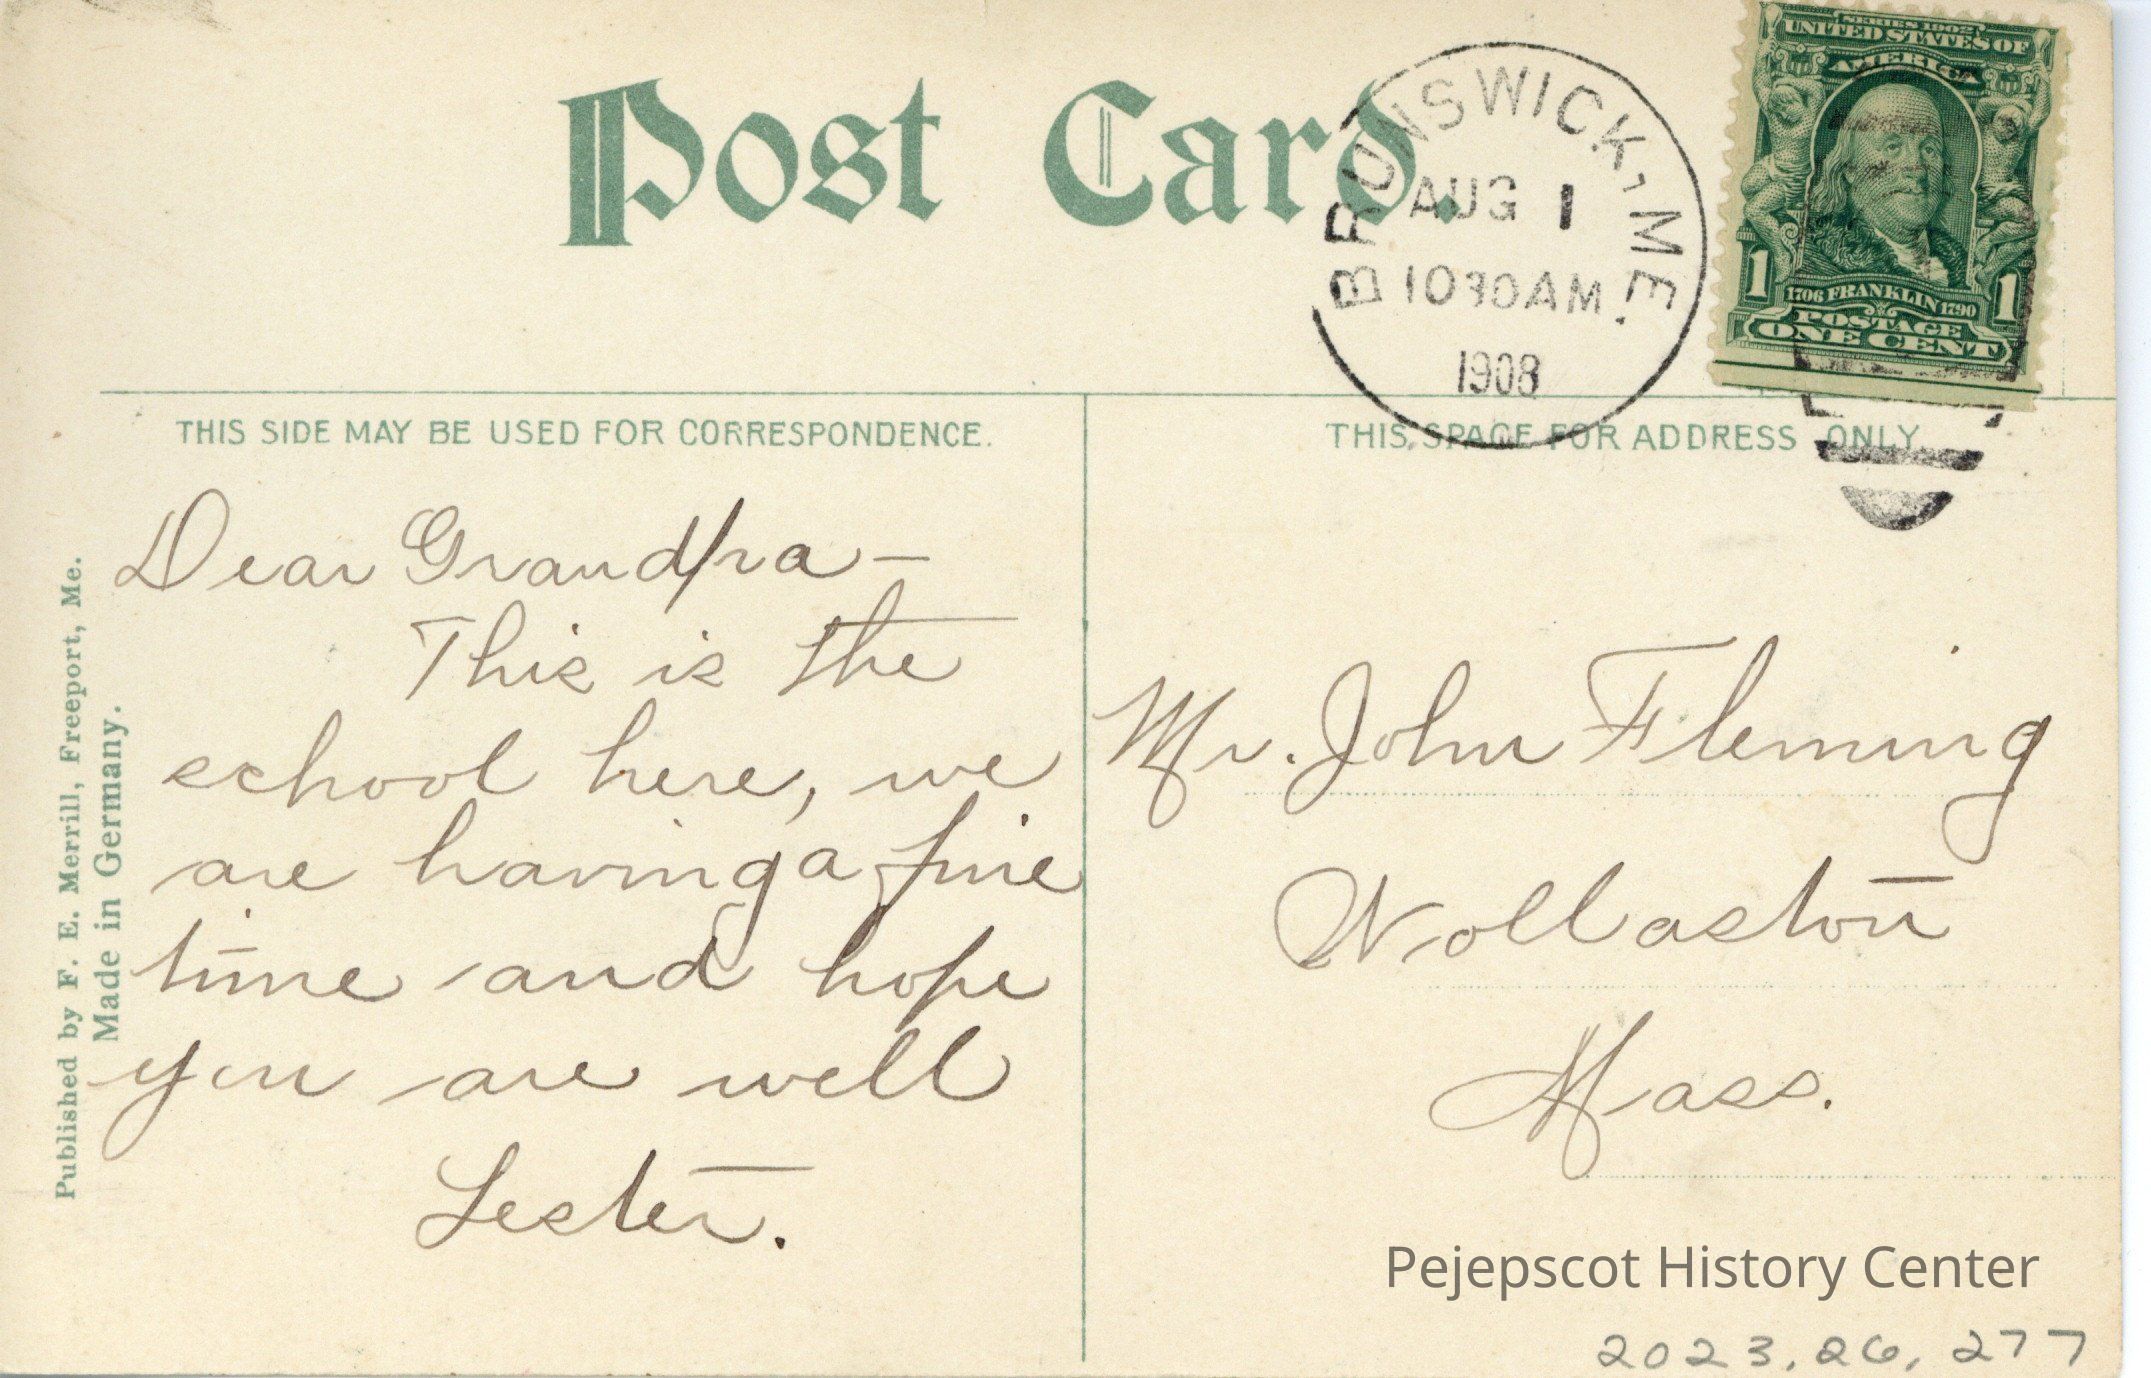 Post Card.
BRUNSWICK, ME.
AUG 1
1030AM
1908
SERIES 1902
UNITED STATES OF
AMERICA
1 1
1706 FRANKLIN 1790
POSTAGE
ONE CENT
THIS SIDE MAY BE USED FOR CORRESPONDENCE.
THIS SPACE FOR ADDRESS ONLY.
Published by F. E. Merrill, Freeport, Me.
Made in Germany.
Dear Grandpa—
This is the
school here, we
are having a fine
time and hope
you are well
Lester.
Mr. John Fleming
Wollaston
Mass.
Pejepscot History Center
2023.26.277